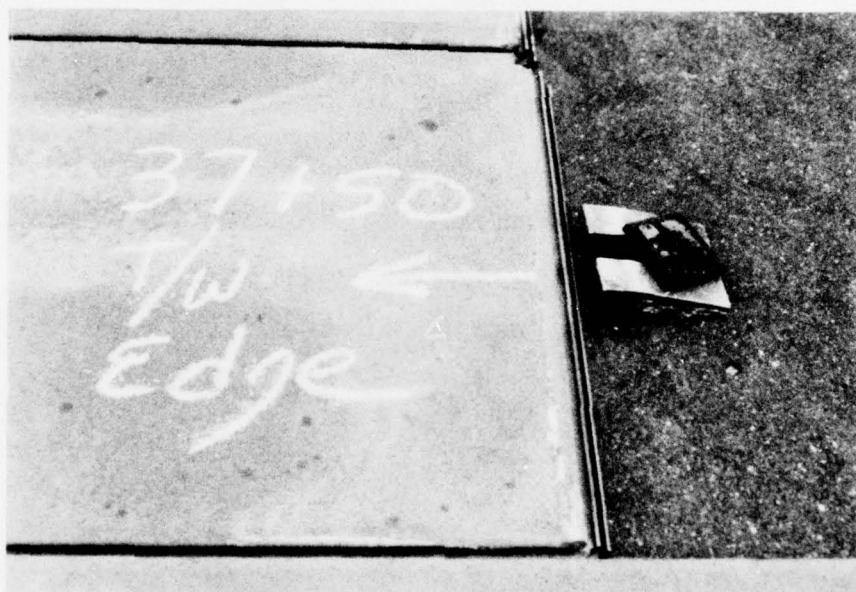 37+50
T/W
Edge